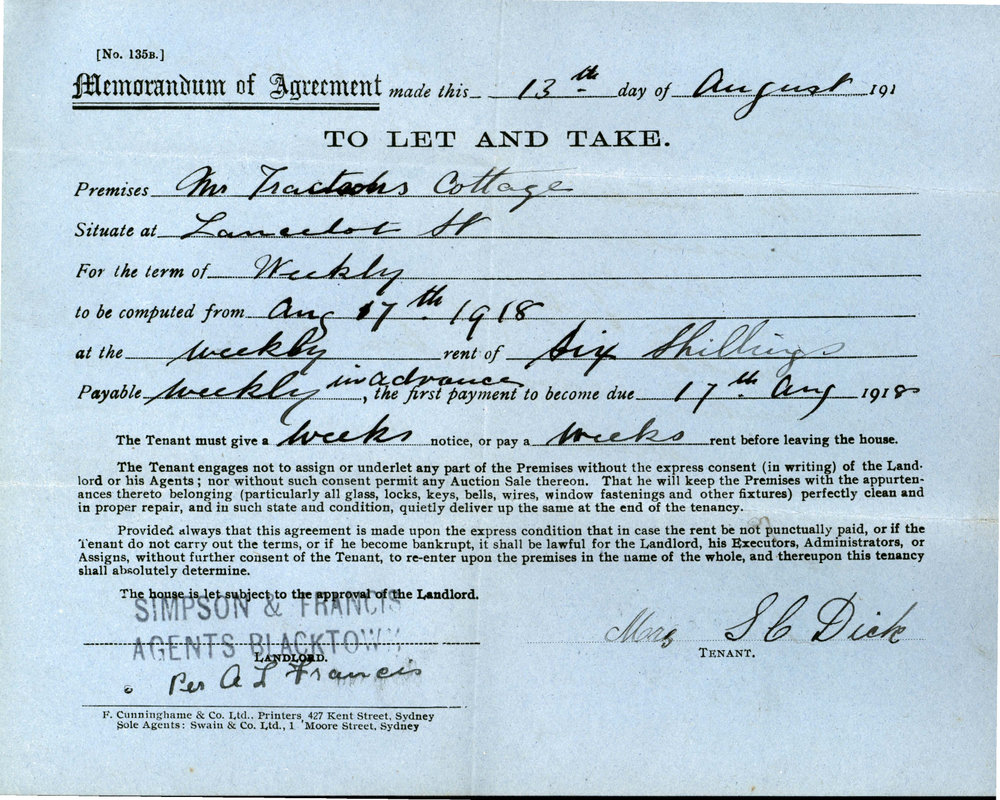 [No. 135B.]
Memorandum of Agreement made this 13th day of August 191
TO LET AND TAKE.
Premises Mr Cottage
Situate at Lancelot St
For the term of Weekly
to be computed from Aug 17th 1918
at the weekly rent of Six Shillings
Payable weekly in advance, the first payment to become due 17th Aug 1918
The Tenant must give a weeks notice, or pay a weeks rent before leaving the house.
The Tenant engages not to assign or underlet any part of the Premises without the express consent (in writing) of the Land-
lord or his Agents; nor without such consent permit any Auction Sale thereon. That he will keep the Premises with the appurten-
ances thereto belonging (particularly all glass, locks, keys, bells, wires, window fastenings and other fixtures) perfectly clean and
in proper repair, and in such state and condition, quietly deliver up the same at the end of the tenancy.
Provided always that this agreement is made upon the express condition that in case the rent be not punctually paid, or if the
Tenant do not carry out the terms, or if he become bankrupt, it shall be lawful for the Landlord, his Executors, Administrators, or
Assigns, without further consent of the Tenant, to re-enter upon the premises in the name of the whole, and thereupon this tenancy
shall absolutely determine.
The house is let subject to the approval of the Landlord.
SIMPSON & FRANCIS
AGENTS BLACKTOWN
LANDLORD.
Per A L Francis
Mrs S C Dick
TENANT.
F. Cunninghame & Co. Ltd., Printers, 427 Kent Street, Sydney
Sole Agents: Swain & Co. Ltd., 1 Moore Street, Sydney